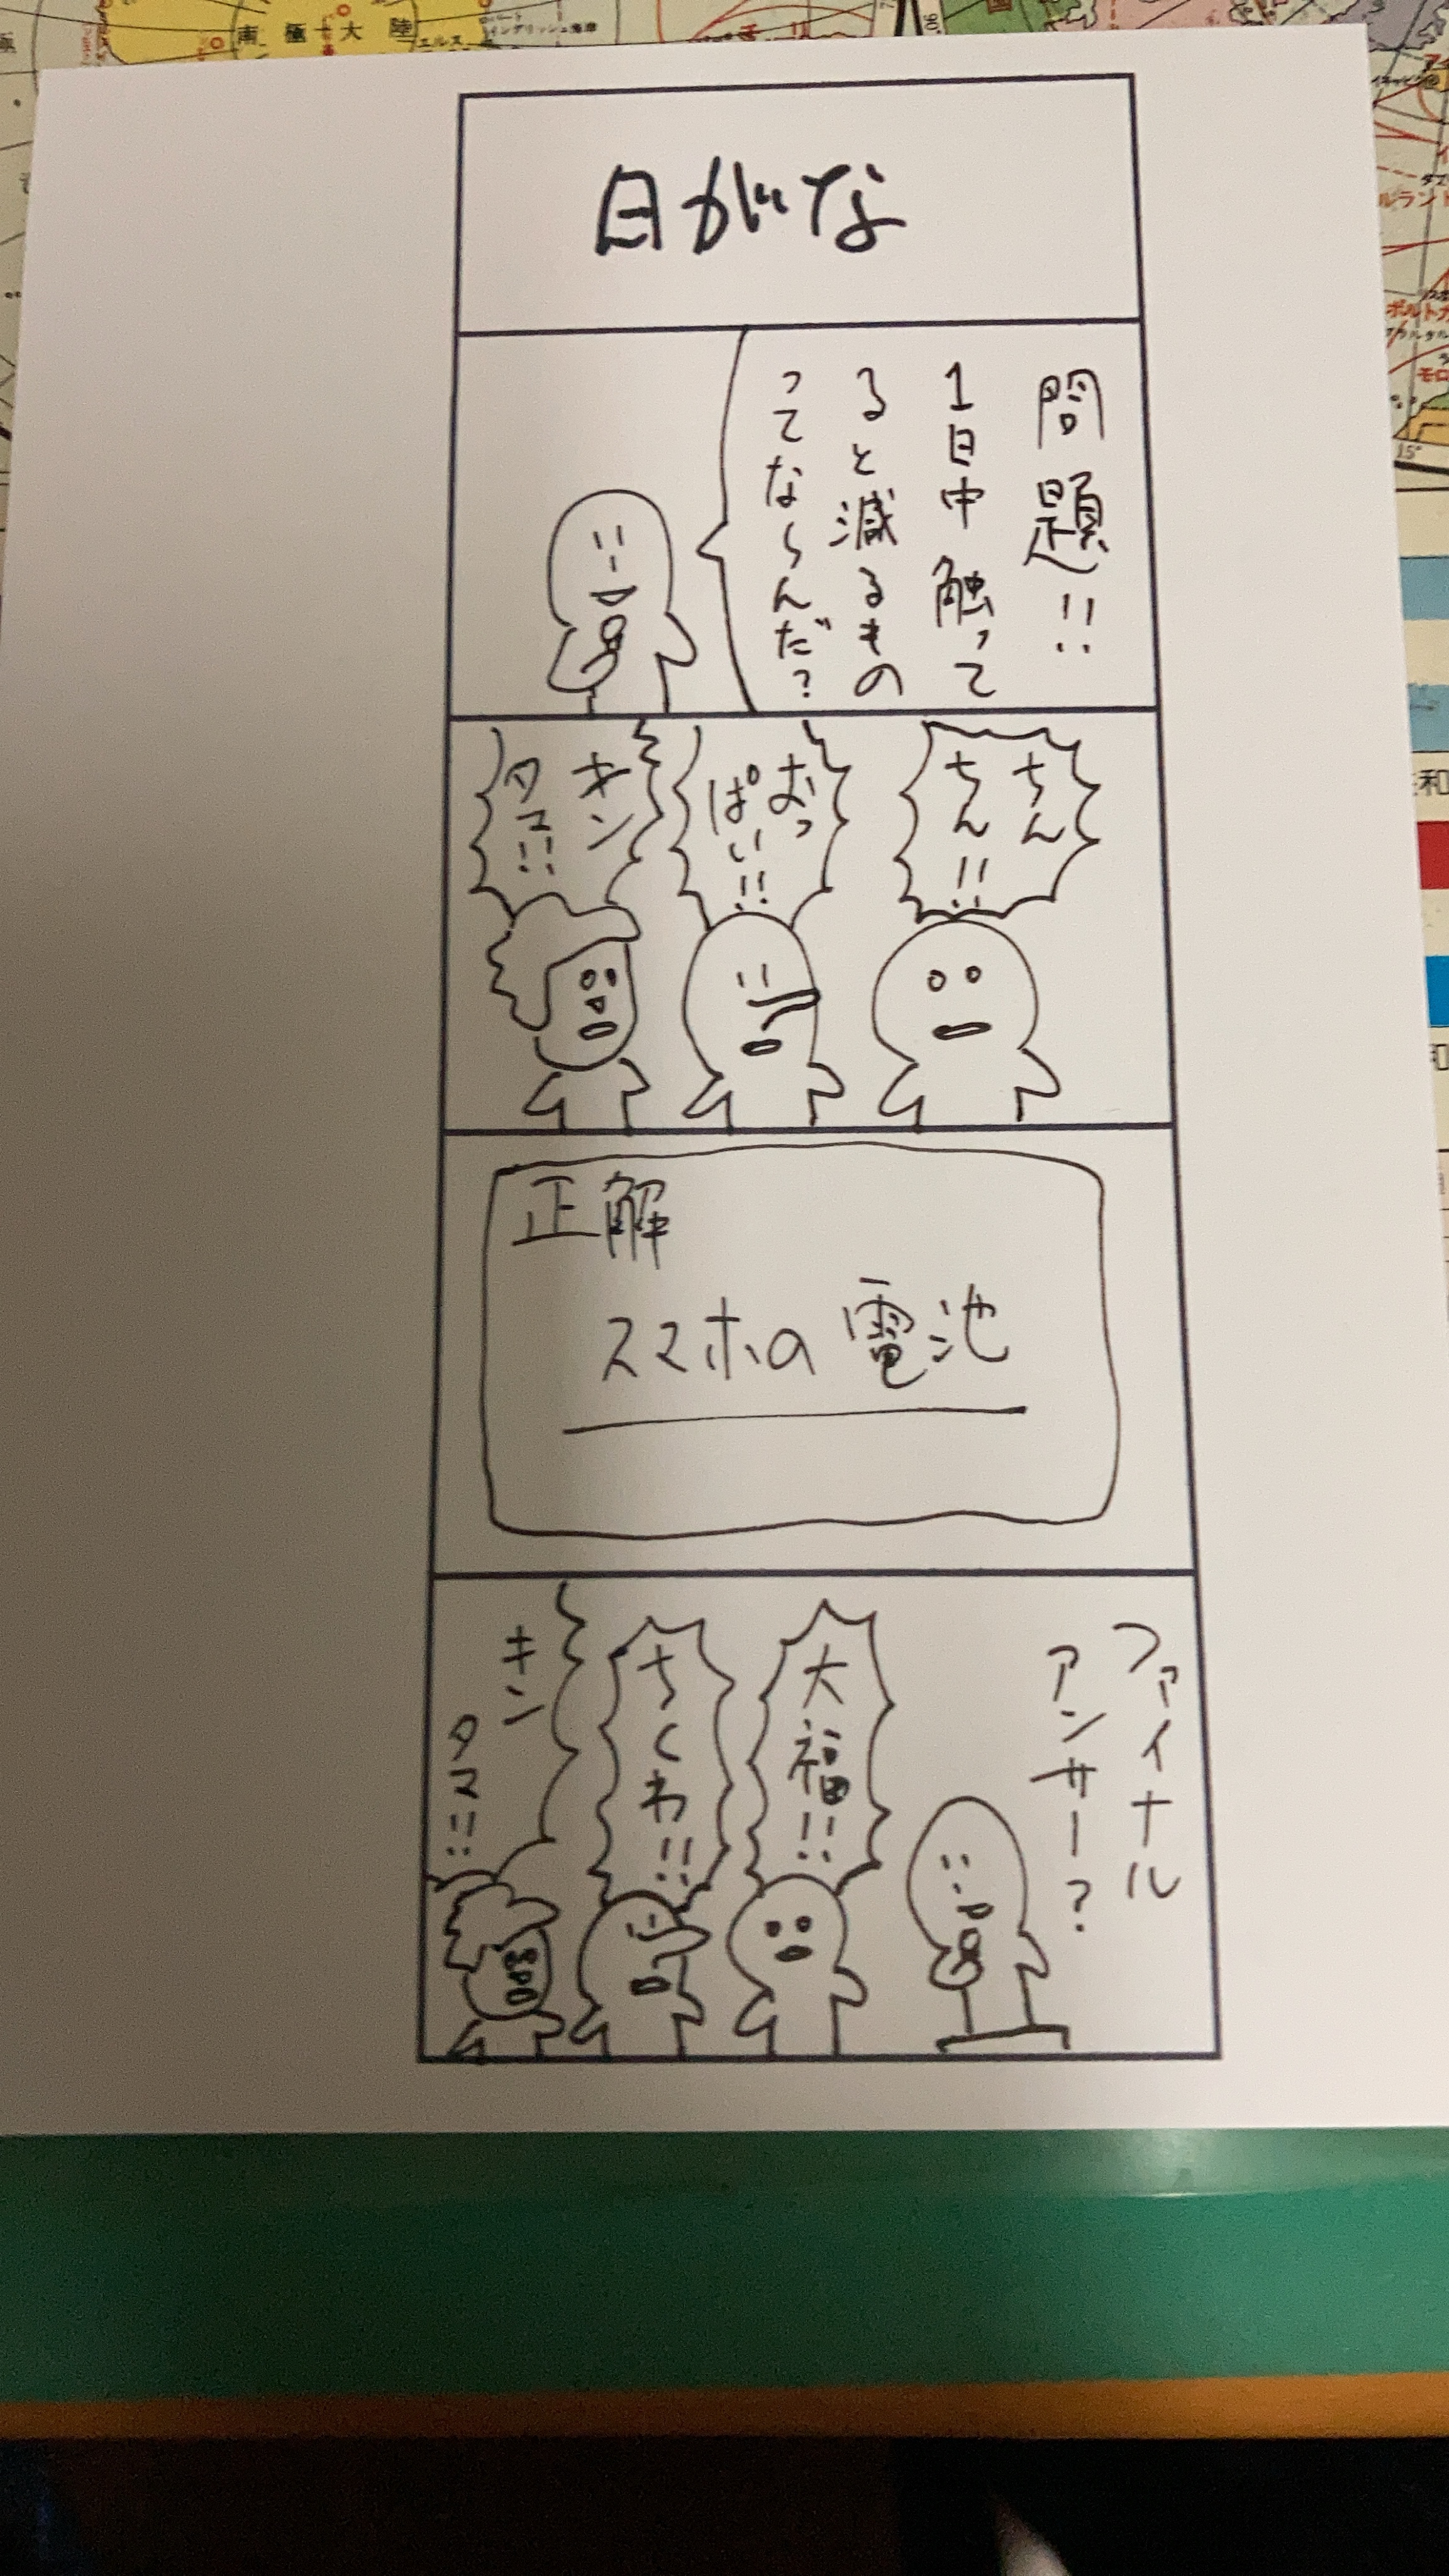 日がな
問題!!
1日中触って
ると減るもの
ってな〜んだ?
ちん
ちん!!
おっ
ぱい!!
キン
タマ!!
正解
スマホの電池
ファイナル
アンサー?
大福!!
ちくわ!!
キン
タマ!!
南極大陸